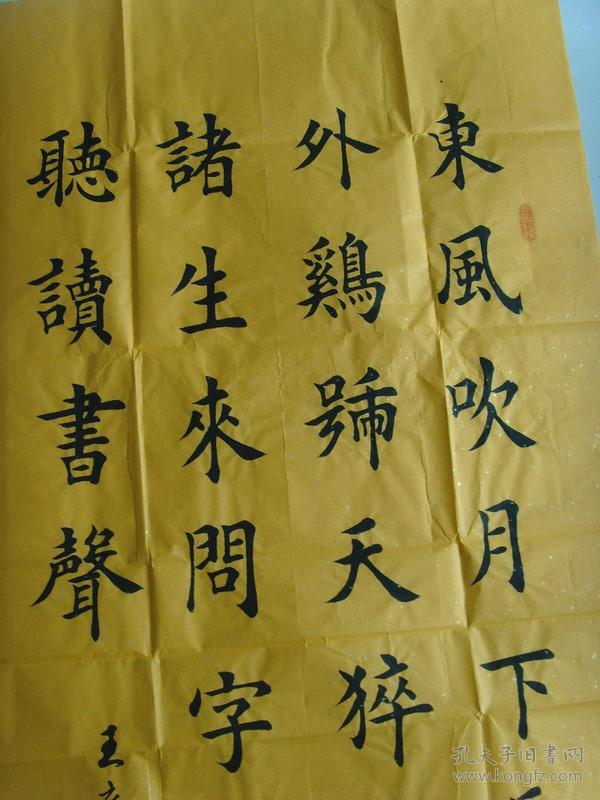 東風吹月下
外鷄號天猝
諸生來問字
聽讀書聲
王
孔夫子旧书网
www.kongfz.com